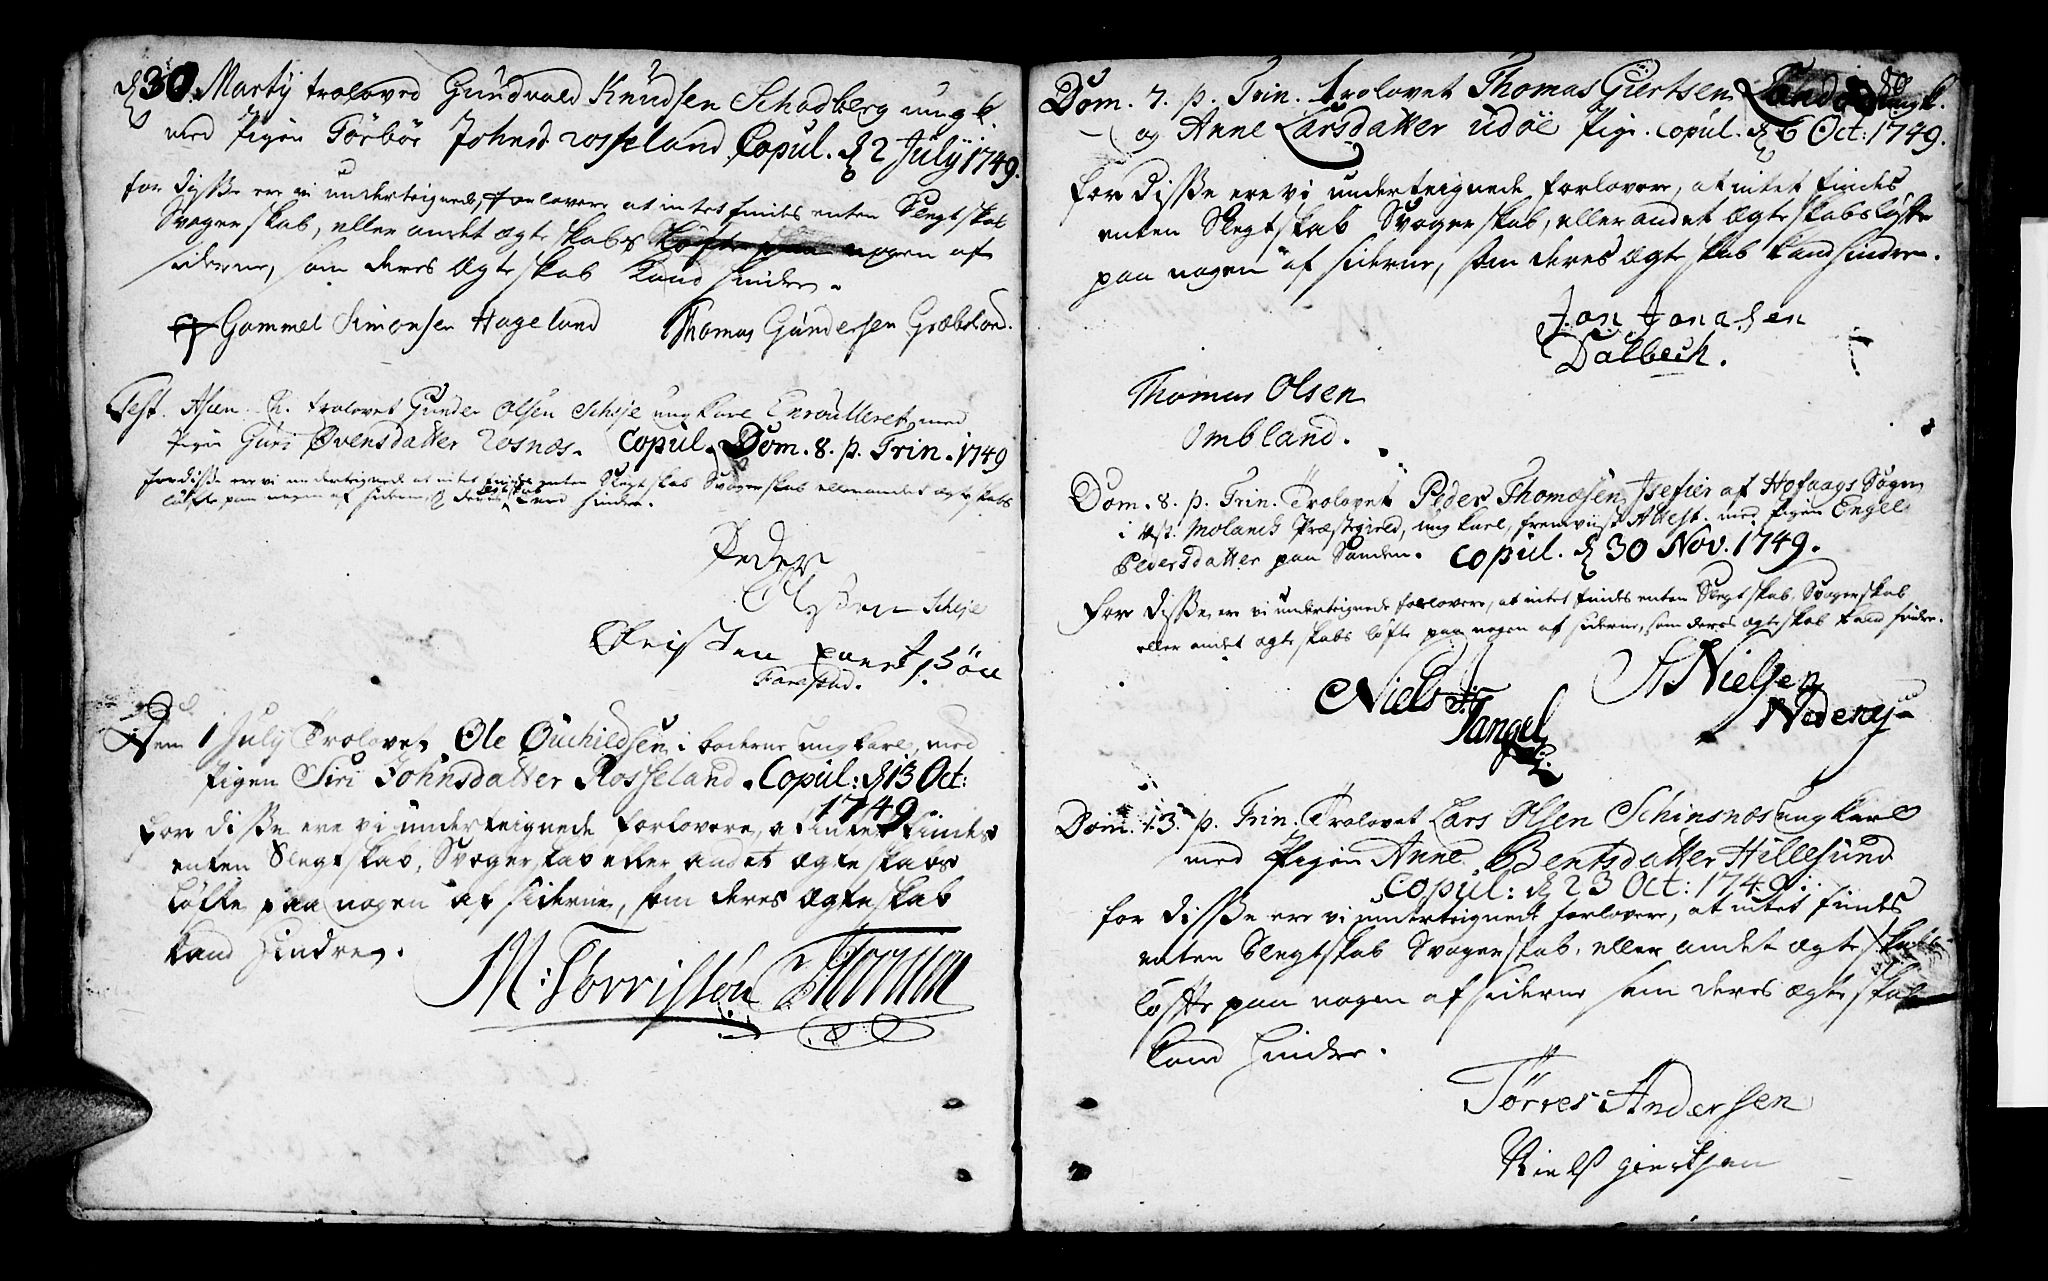 d 30 Martij troloved Gundvald Knudsen Schadberg ungk.
med Pigen Torbor Johnsd. rosseland Copul. d 2 July 1749.
for disse ere vi underteignede forlovere at intet findes enten Slegtskab
Svogerskab, eller andet ægteskabs Løfte paa nogen af
siderne, som deres Ægteskab kand hindre.
Gammel Simonsen Hageland Thomas Gundersen Græbsland.
Fest. Ascen. Ch. trolovet Gunder Olsen Scheje ungkarl Enroulleret med
Pigen Guri Ovensdatter Rosnæs. Copul. Dom. 8. p. Trin. 1749
for disse ere vi underteignede at intet findes enten Slegtskab Svogerskab eller andet ægteskabs
løfte paa nogen af siderne deres ægteskab kand hindre.
Peder
Olssen Scheje
Christen
Dend 1 July Trolovet Ole Ouchildsen i boderne ungkarl, med
Pigen Siri Johnsdatter Rosseland. Copul: d 13 Oct:
1749.
For disse ere vi underteignede forlovere, at intet findes
enten Slegtskab, Svogerskab eller andet ægteskabs
Løfte paa nogen af siderne, som deres Ægteskab
kand hindre.
M: Torrissøn
Dom. 7. p. Trin. trolovet Thomas Giertsen ungk.
og Anne Larsdatter udøe Pige. copul. d 6 Oct: 1749.
for disse ere vi underteignede forlovere, at intet findes
enten Slegtskab Svogerskab, eller andet Ægteskabsløfte
paa nogen af siderne, som deres Ægteskab kand hindre.
Jon Jonasen
Dalbech.
Thomas Olsen
Ombland.
Dom. 8. p. Trin. Trolovet Peder Thomæsen Isefier af Hofaags Sogn
i Vst. Molands Præstegield, ungkarl, fremviist Attest. med Pigen Engel
Pedersdatter paa Sanden. copul. d 30 Nov. 1749.
For disse ere vi underteignede forlovere, at intet findes enten Slegtskab, Svogerskab
eller andet ægteskabs løfte paa nogen af siderne, som deres ægteskab kand hindre.
Niels Tangel
Nielsen
Dom. 13. p. Trin. Trolovet Lars Olsen Schinsnæs ungkarl
med Pigen Anne Bentsdatter Hillesund
copul: d 23 Oct: 1749.
for disse ere vi underteignede forlovere, at intet findes
enten Slegtskab Svogerskab, eller andet ægteskabs
løfte paa nogen af siderne som deres ægteskab
kand hindre.
Törres Andersen
Niels giertsen